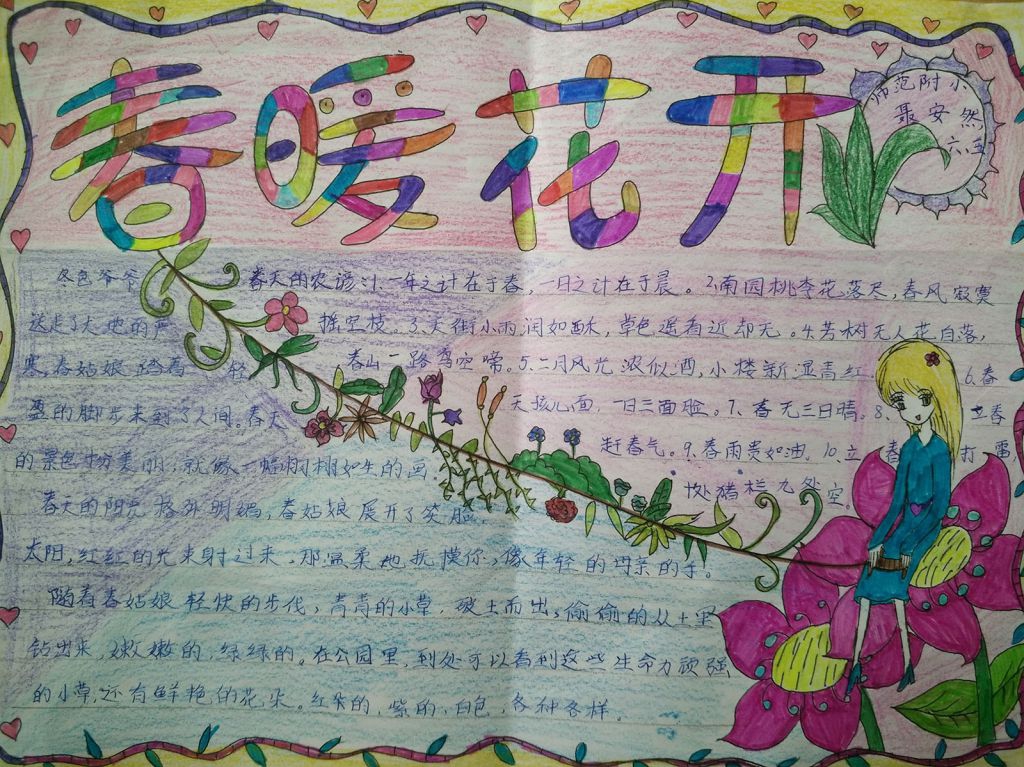 春暖花开
师范附小
聂安然
六、五
冬色爷爷
送走了大地的严
寒,春姑娘踏着轻
盈的脚步来到了人间。春天
的景色十分美丽,就像一幅栩栩如生的画。
春天的阳光格外明媚,春姑娘展开了笑脸,
太阳,红红的光束射过来,那温柔地抚摸你,像年轻的母亲的手。
随着春姑娘轻快的步伐,青青的小草,破土而出,偷偷的从土里
钻出来,嫩嫩的,绿绿的。在公园里,到处可以看到这些生命力顽强
的小草,还有鲜艳的花朵。红朵的,紫的,白色,各种各样。
春天的农谚:1.一年之计在于春,一日之计在于晨。2.南园桃李花落尽,春风寂寞
摇空枝。3.天街小雨润如酥,草色遥看近却无。4.芳树无人花自落,
春山一路鸟空啼。5.二月风光浓似酒,小楼新湿青红
6.春
天孩儿面,一日三面脸。7、春无三日晴。8、立春
赶春气。9.春雨贵如油。10.立春打雷
十处猪栏九处空。